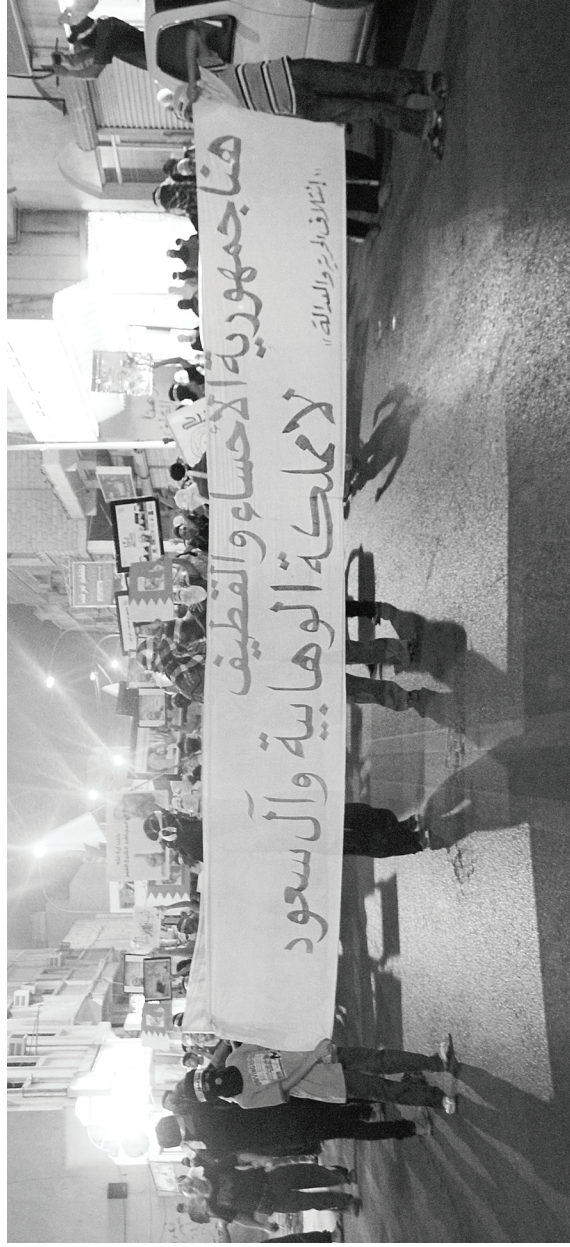 هنا جمهورية الاحساء والقطيف
لا مملكة الوهابية وآل سعود
"إئتلاف الحرية والعدالة"